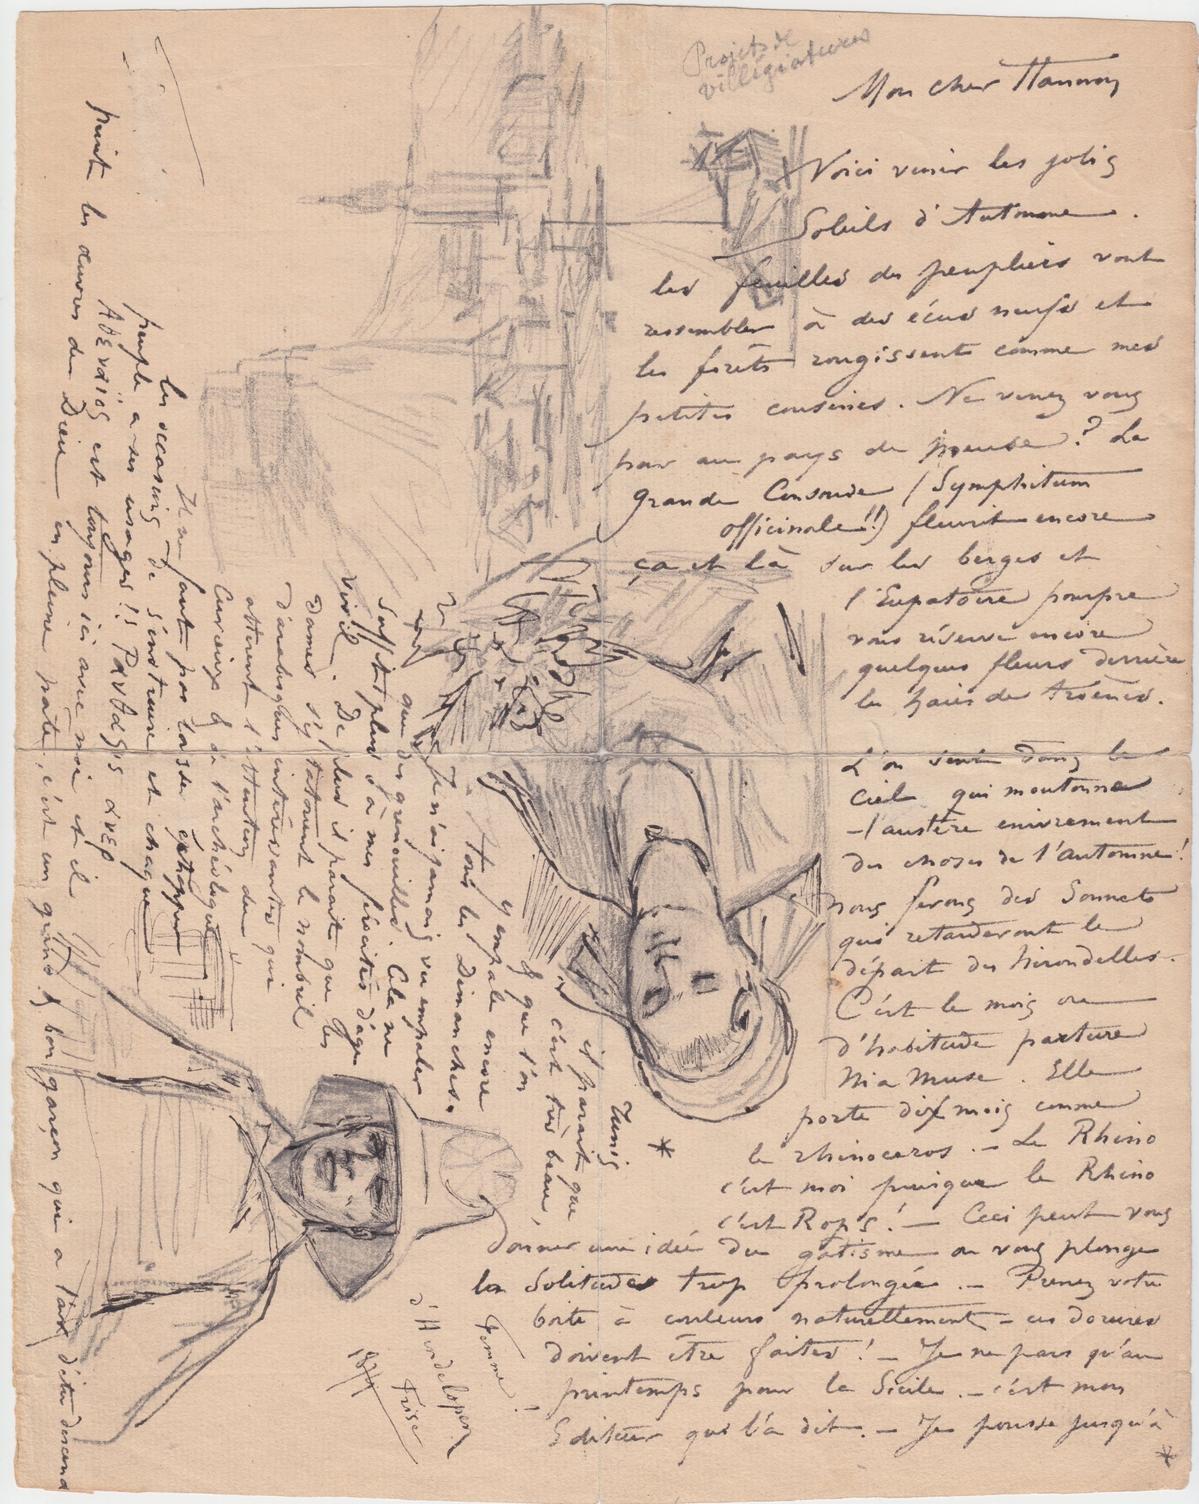 Projets de
villégiatures
Mon cher Hannon
Voici venir les jolis
Soleils d'Automne.
les feuilles des peupliers vont
ressembler à des écus neufs et
les forêts rougissent comme mes
petites cousines. Ne venez vous
pas au pays de meuse? La
Grande Consoude (Symphitum
officinale!!) fleurit encore
ça et là sur les berges et
l'Eupatoire pourpre
vous réserve encore
quelques fleurs derrière
les haies de troënes.
L'on sent dans le
Ciel qui moutonne
l'austère enivrement
des choses de l'automne!
nous ferons des Sonnets
qui retarderont le
départ des hirondelles.
C'est le mois où
d'habitude parture
Ma Muse. Elle
porte dix mois comme
le rhinoceros. – Le Rhino
c'est moi puisque le Rhino
c'est Rops! – Ceci peut vous
donner une idée du gatisme où vous plonge
la Solitude trop prolongée. – Prenez votre
boite à couleurs naturellement – ces dorures
doivent être faites! – Je ne pars qu'au
printemps pour la Sicile. – c'est mon
Editeur qui l'a dit. – Je pousse jusqu'à
*
*
Tunis
il parait que
c'est très beau,
& que l'on
y empale encore
tous les Dimanches.
Je n'ai jamais vu empaler
que des grenouilles. Cela ne
suffit plus à mes férocités d'âge
viril. De plus il parait que les
Dames s'y tatouent le nombril
d'arabesques intéressantes qui
attirent l'attention du
Curieux & de l'archéologue
Il ne faut pas laisser échapper
les occasions de s'instruire et chaque
peuple a ses usages!!
est toujours ici avec moi et il
peint les œuvres de Dieu en pleine pâte, c'est un grand & bon garçon qui a l'air d'être descend
Femme!
d'Hindelopen
Frise